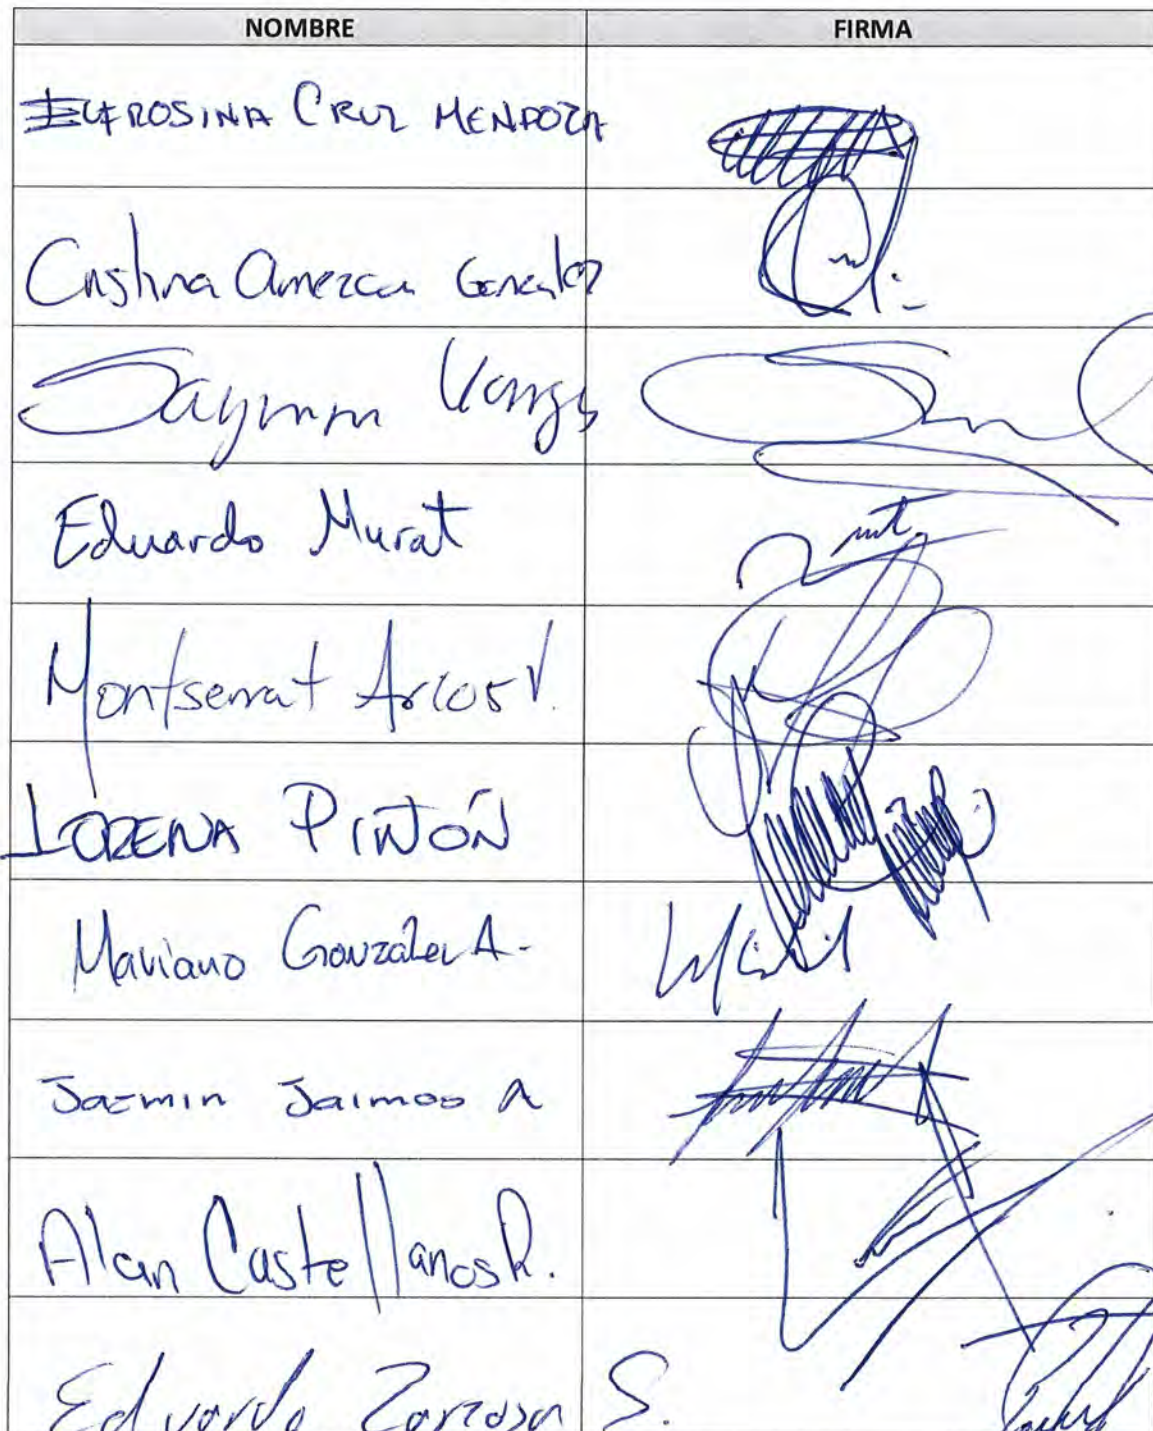 NOMBRE FIRMA
EUFROSINA CRUZ MENDOZA
Cristina Amezcua González
Sayonara Vargas
Eduardo Murat
Montserrat Arcos V.
LORENA PIÑÓN
Mariano González A.
Jazmin Jaimes A
Alan Castellanos R.
Eduardo Zarzosa S.